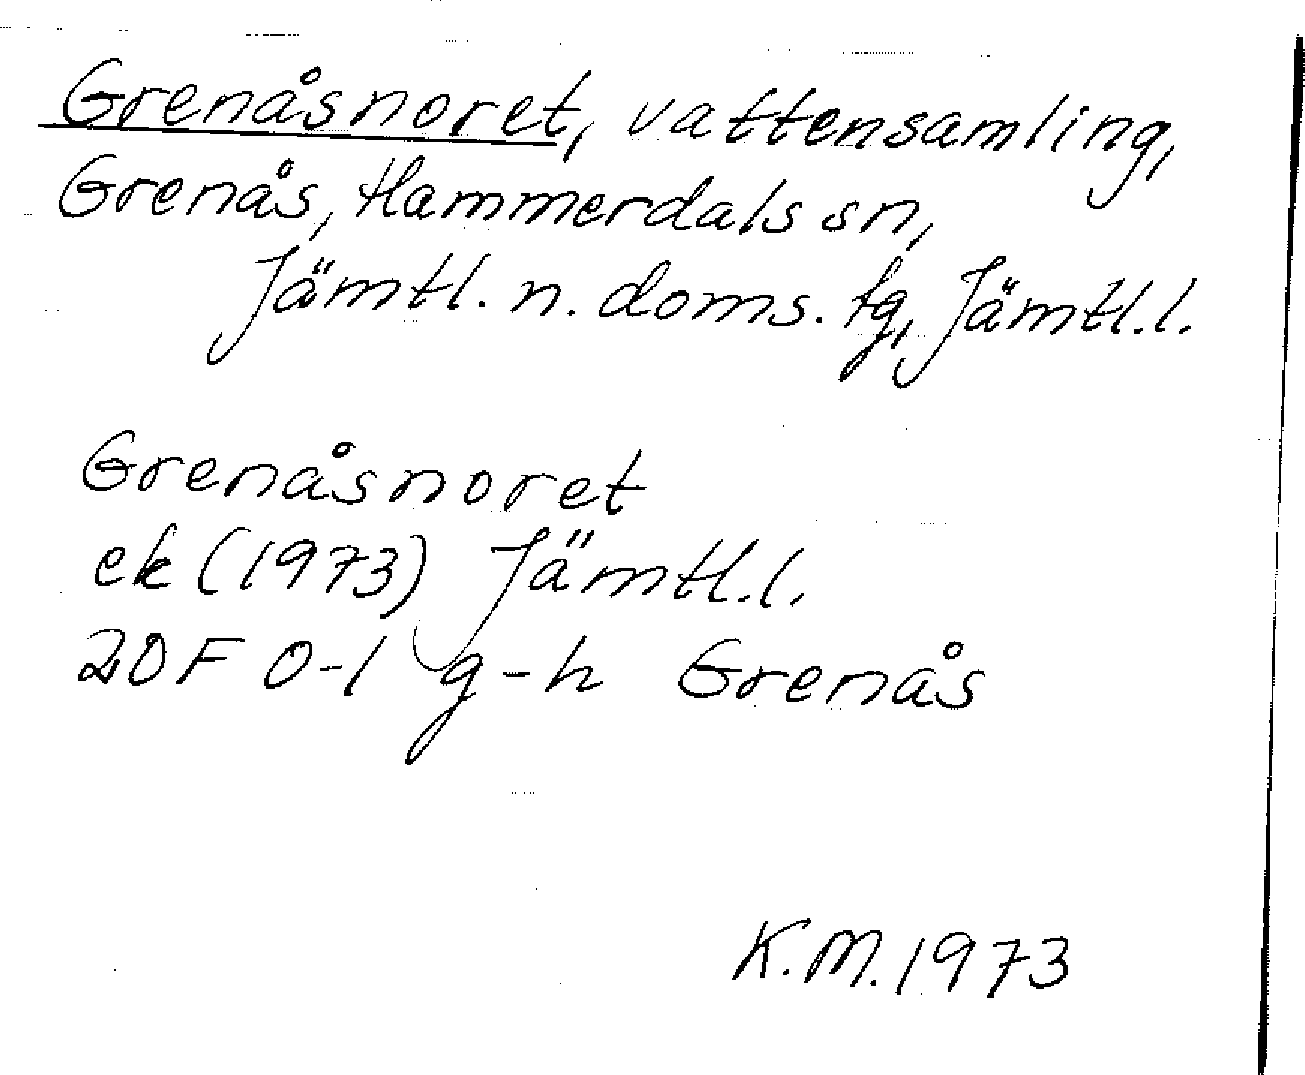 Grenåsnoret, vattensamling,
Grenås, Hammerdals sn,
Jämtl. n. doms. tg, Jämtl.l.
Grenåsnoret
ek (1973) Jämtl.l.
20F 0-1 g-h Grenås
K.M. 1973